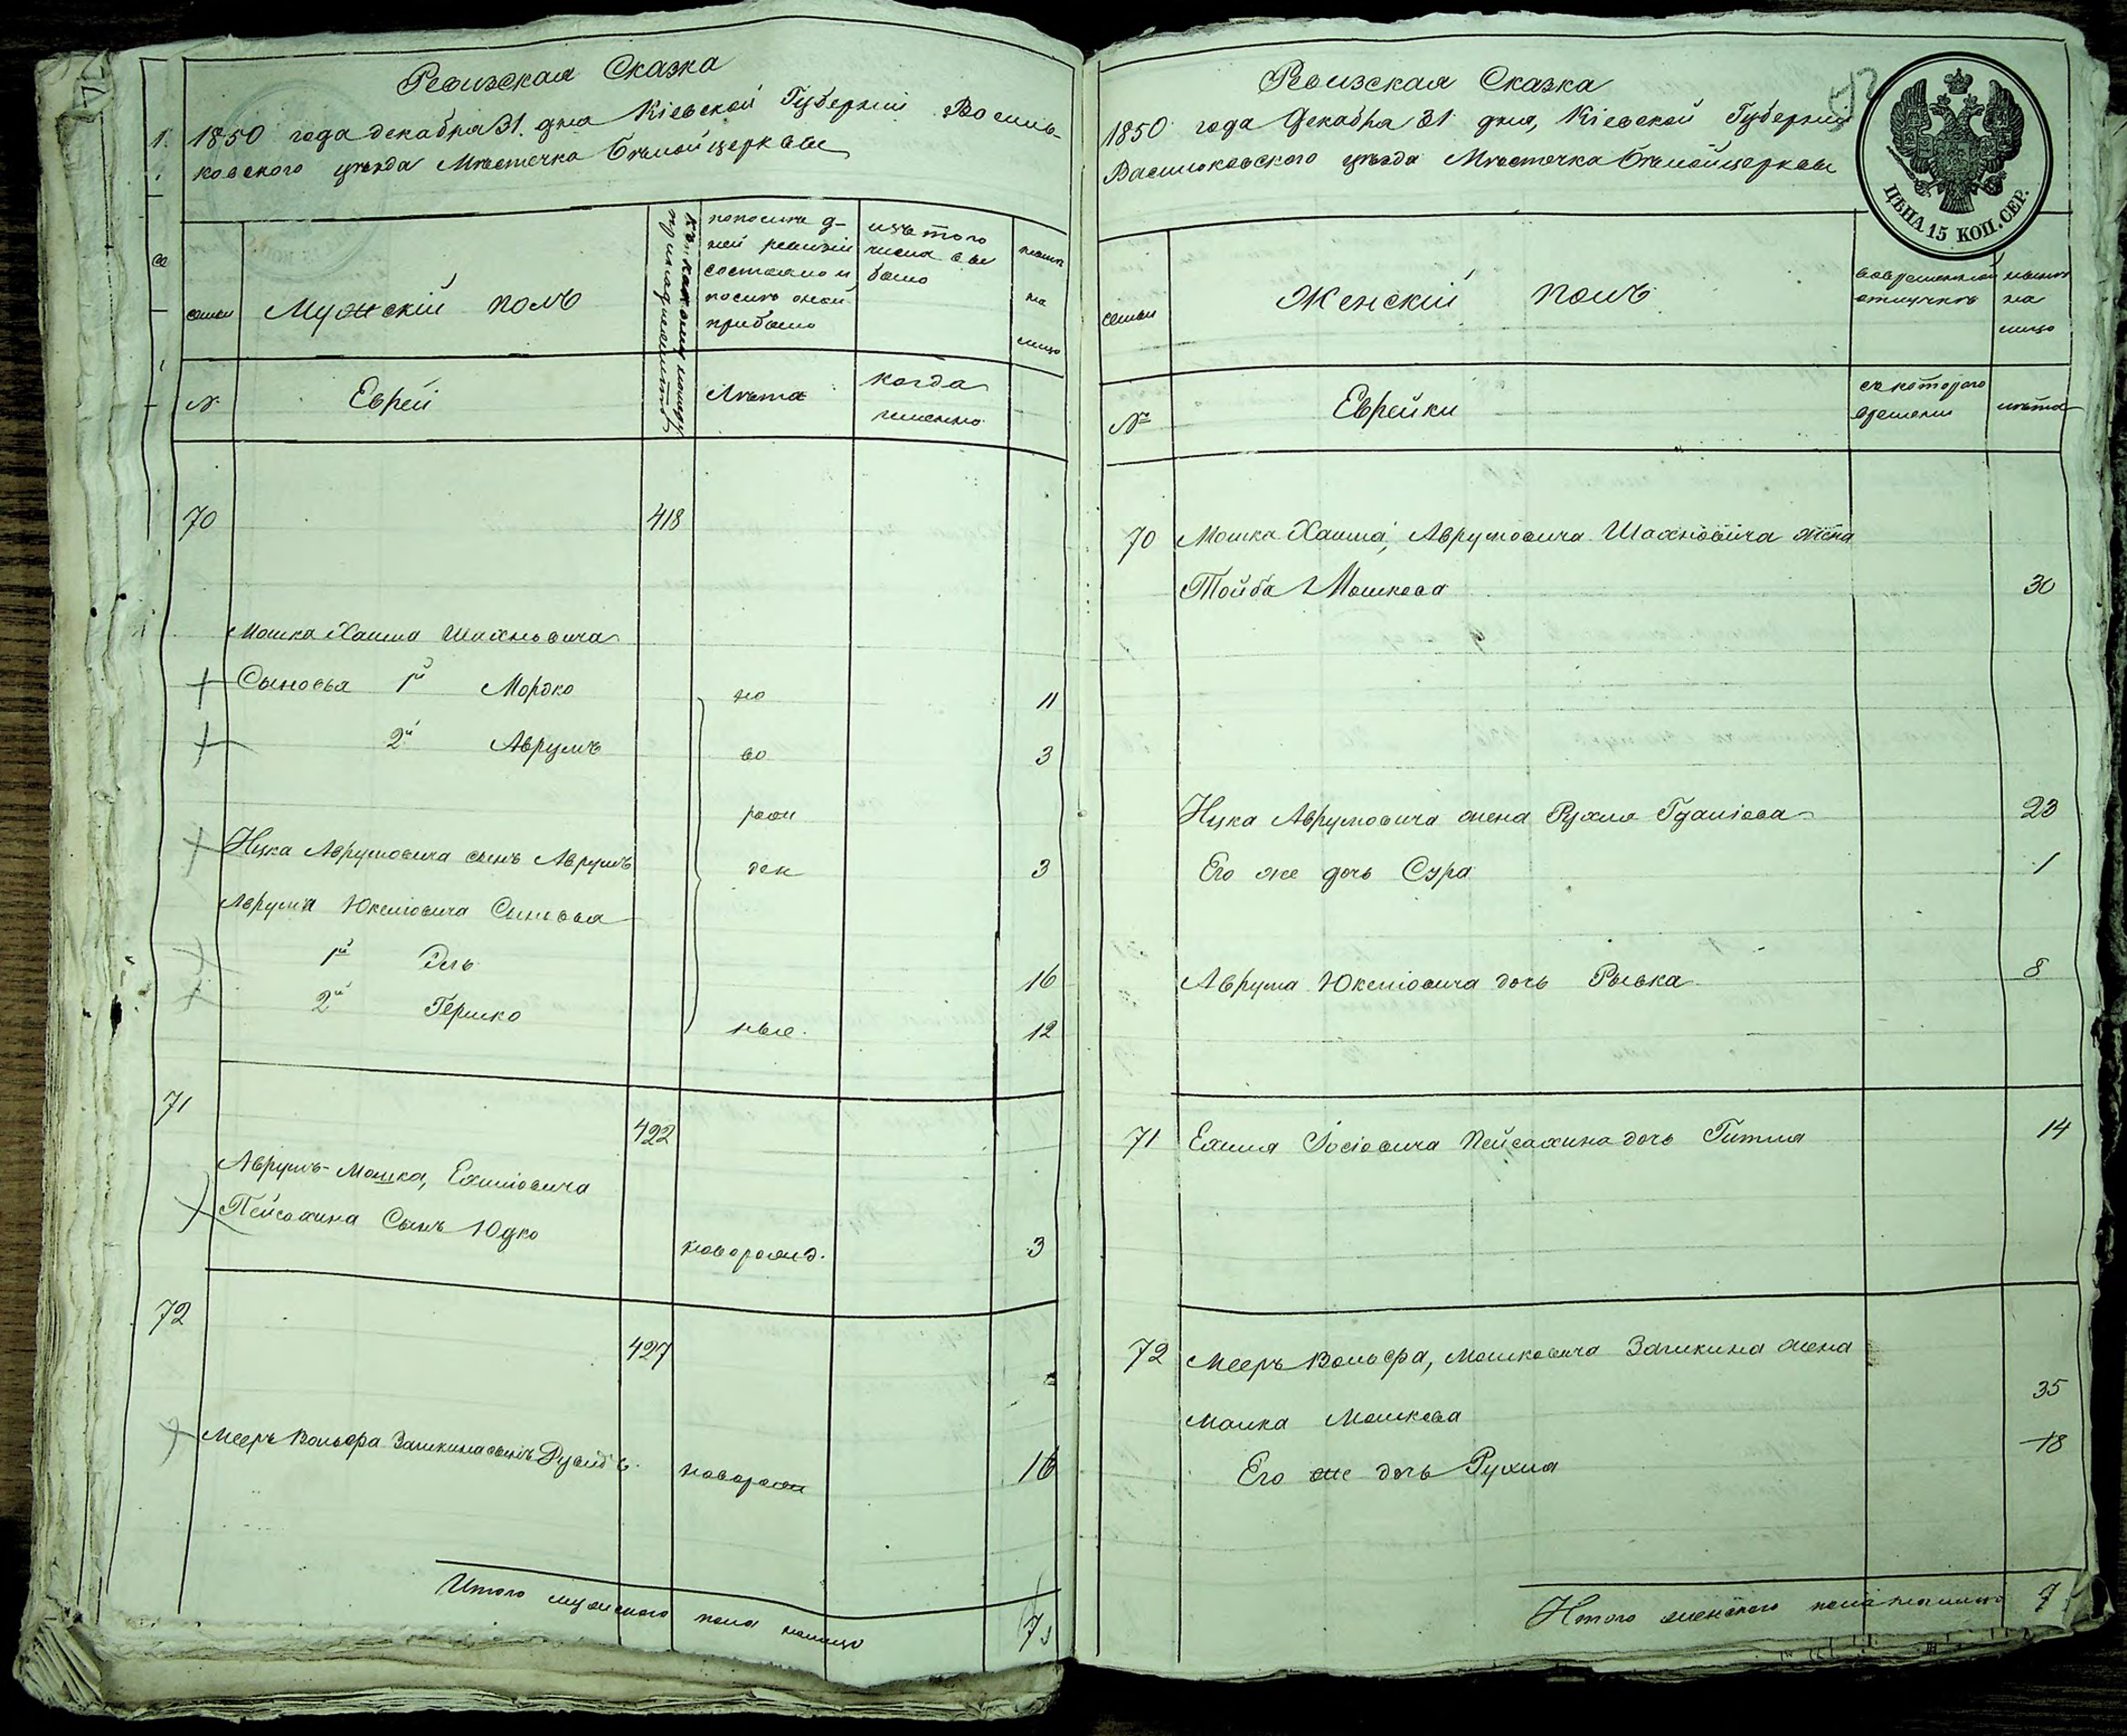 Ревизская Сказка
1850 года декабря 31. дня Кіевской Губерніи Василь-
ковского уѣзда Мѣстечка Бѣлойцеркви
семьи
Мужскій полъ
къ какому классу принадлежитъ
по послѣд-
ней ревизіи
состояло и
послѣ оной
прибыло
изъ того
числа вы
было
нынѣ
на
лицо
№
Евреи
Лѣта
когда
именно
70
418
Мошка Хаима Шахновича
Сыновья 1й Мордко
11
2й Аврумъ
3
Ицка Аврумовича сынъ Аврумъ
3
Аврума Юкелювича Сыновья
1й
16
2й Гершко
12
но
во
рож
ден
ные.
71
422
Аврумъ-Мошка, Ехилювича
Пейсахина Сынъ Юдко
новорожд.
3
72
427
Мееръ Вольфа Зашкина сынъ Рувинъ
новорож
16
Итого мужского пола налицо
7
Ревизская Сказка
1850 года Декабря 31 дня, Кіевской Губерніи
Васильковского уѣзда Мѣстечка Бѣлойцеркви
ЦѢНА 15 КОП. СЕР.
семьи
Женскій полъ
во временной
отлучкѣ
нынѣ
на
лицо
№
Еврейки
съ которого
времени
лѣта
70 Мошка Хаима, Аврумовича Шахновича жена
Тойба Мошкова
30
Ицка Аврумовича жена Рухля
23
Его же дочь Сура
1
Аврума Юкелювича дочь Рывка
8
71 Ехиля Іосіовича Пейсахина дочь Гитля
14
72 Мееръ Вольфа, Мошковича Зашкина жена
Малка Мошкова
35
Его же дочь Рухля
18
Итого женского пола налицо
7